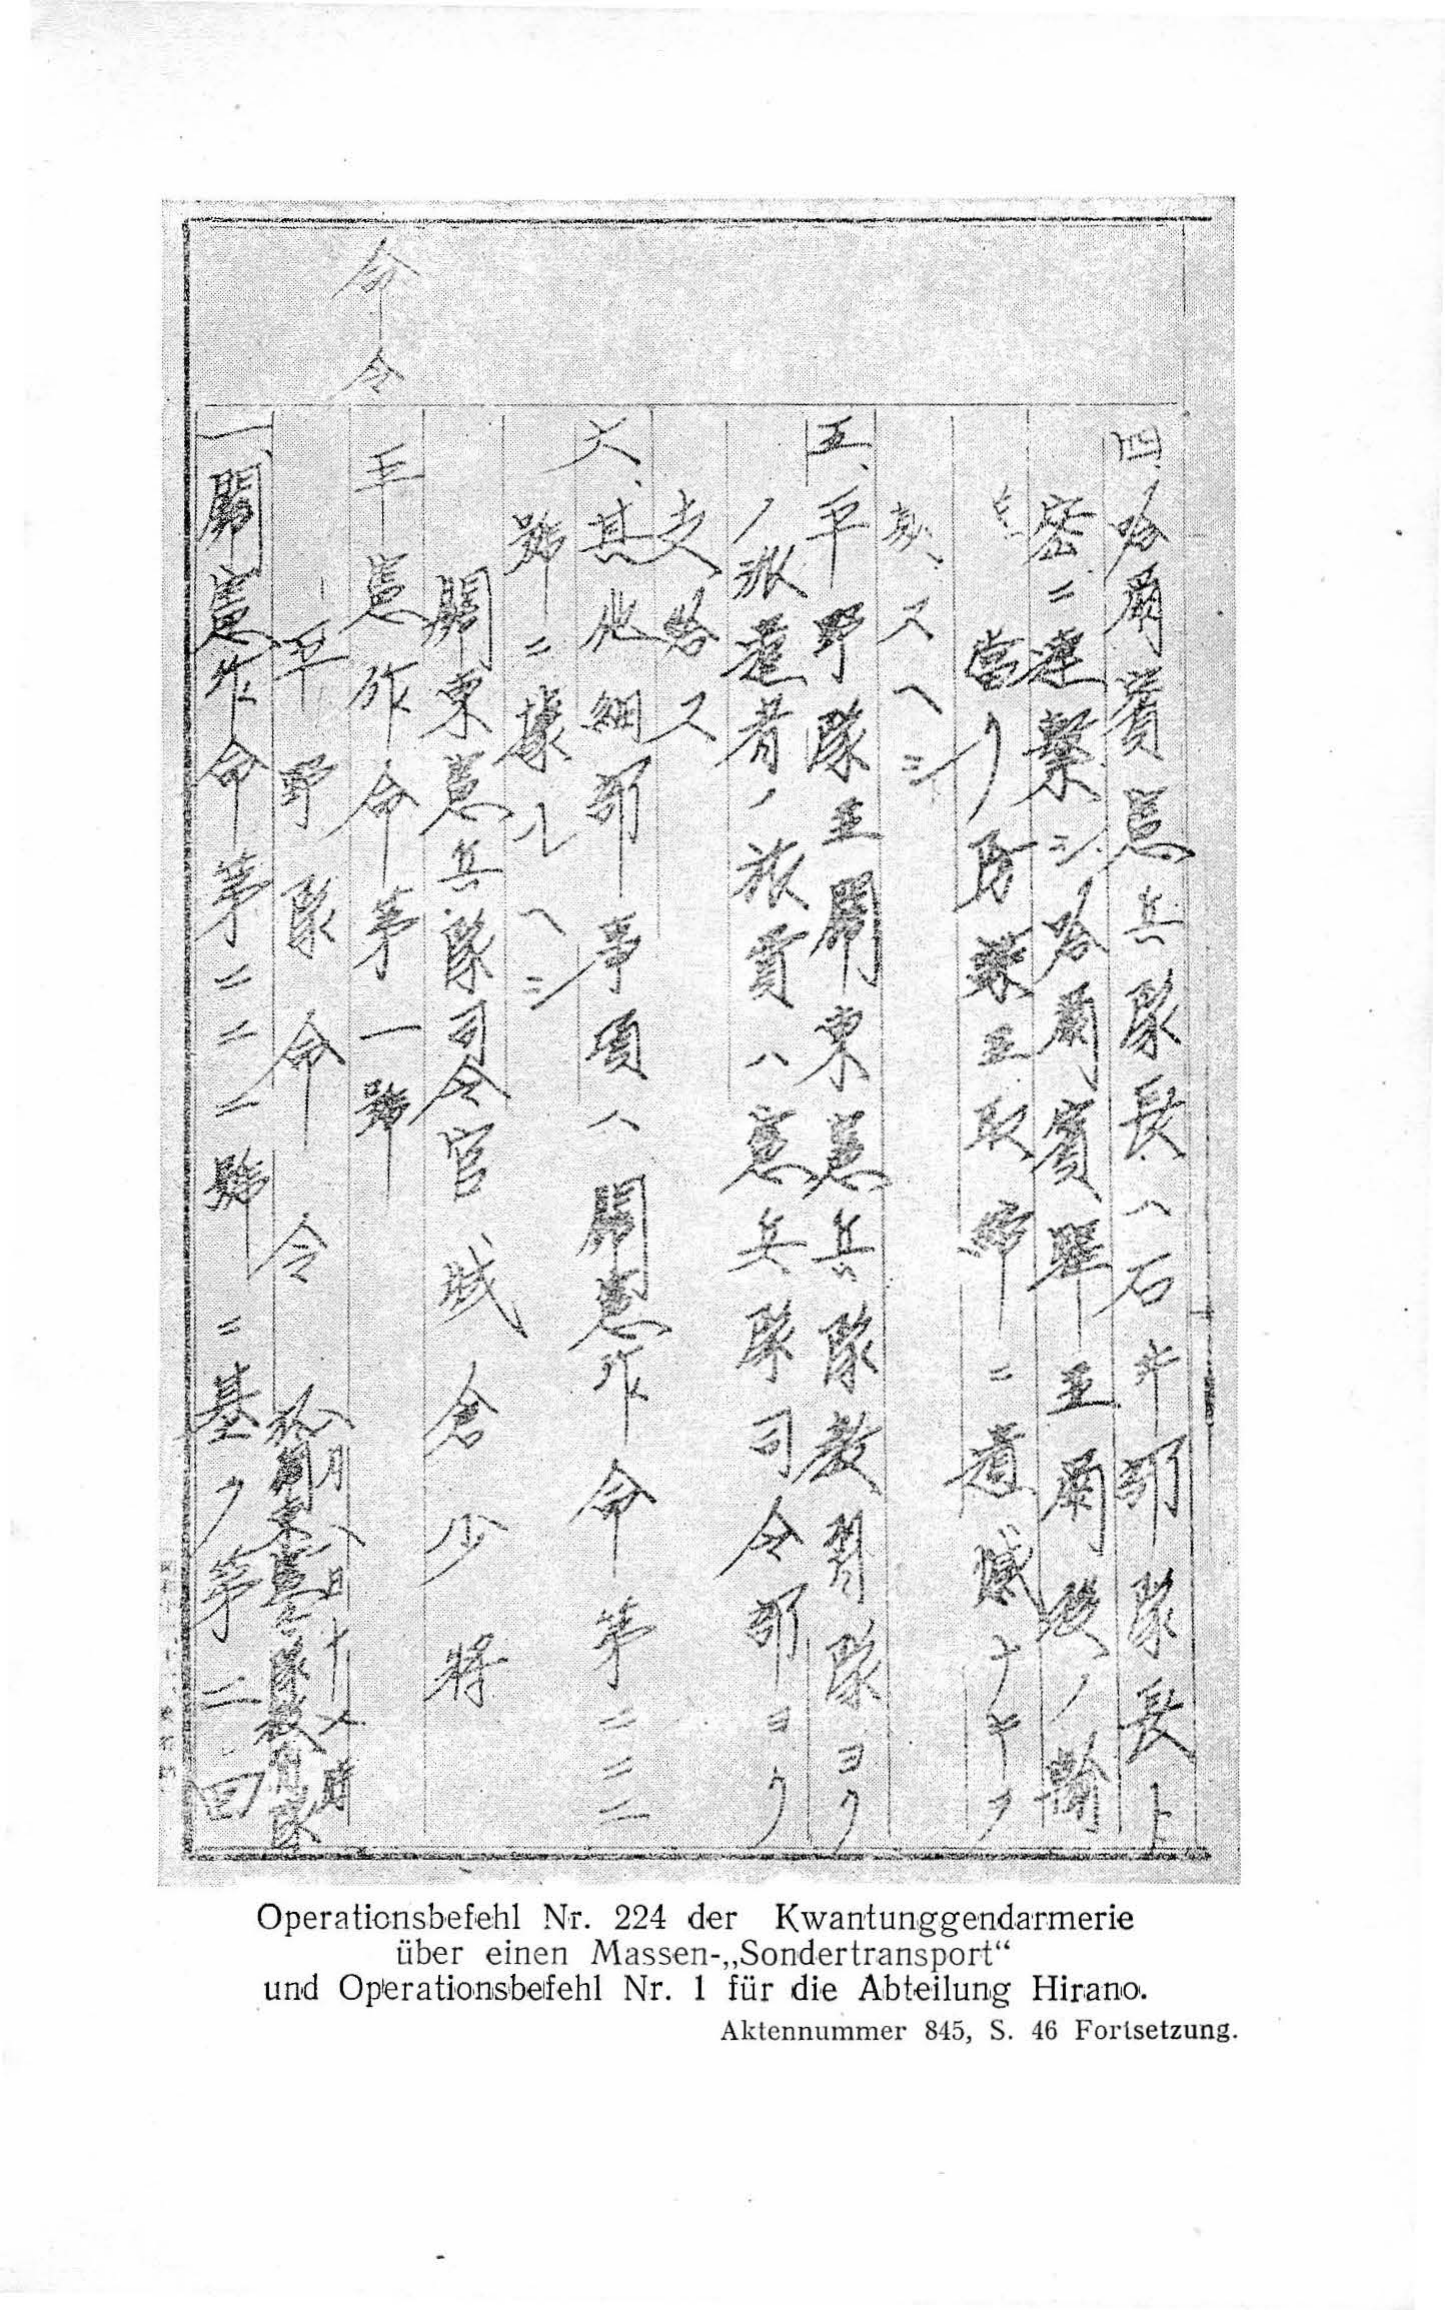 四、哈爾賓憲兵隊長ハ石井部隊長ト
密ニ連繫シ哈爾賓驛並爾後ノ輸
當リ防諜並取締ニ遺憾ナキヲ
期スヘシ
五、平野隊並關東憲兵隊教習隊ヨリ
ノ派遣者ノ旅費ハ憲兵隊司令部ヨリ
支給ス
六、其他細部事項ハ關憲作命第二二二
號ニ據ルヘシ
關東憲兵隊司令官城倉少將
命令
平憲作命第一號
平野隊命令
八月八日十六時
於關東憲兵隊教習隊
一、關憲作命第二二二號ニ基ク第二回
Operationsbefehl Nr. 224 der Kwantunggendarmerie
über einen Massen-„Sondertransport“
und Operationsbefehl Nr. 1 für die Abteilung Hirano.
Aktennummer 845, S. 46 Fortsetzung.